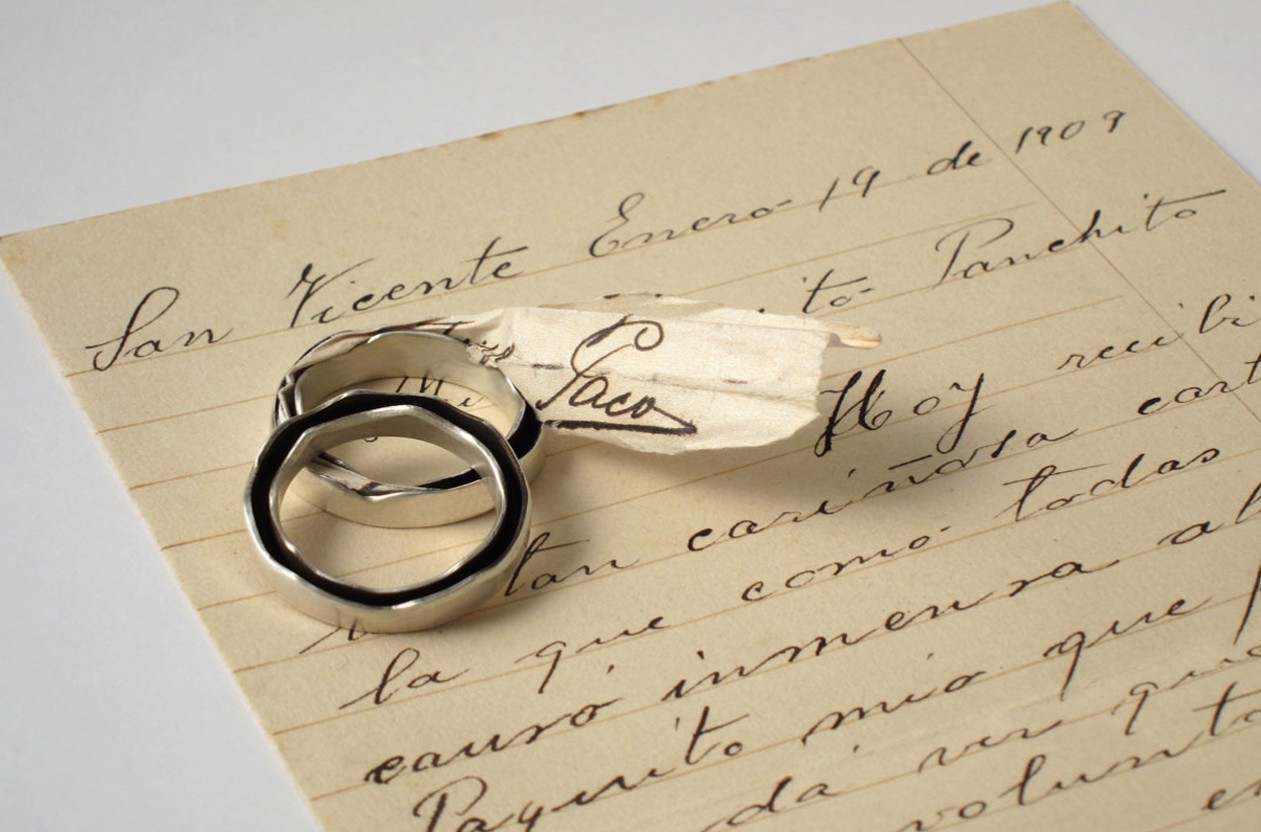 San Vicente Enero 19 de 1909
Mi ito Panchito
Paco
Hoy recibi
tan cariñosa cart
la que como todas
causó inmensa al
Paquito mio que
da ver que
volunt